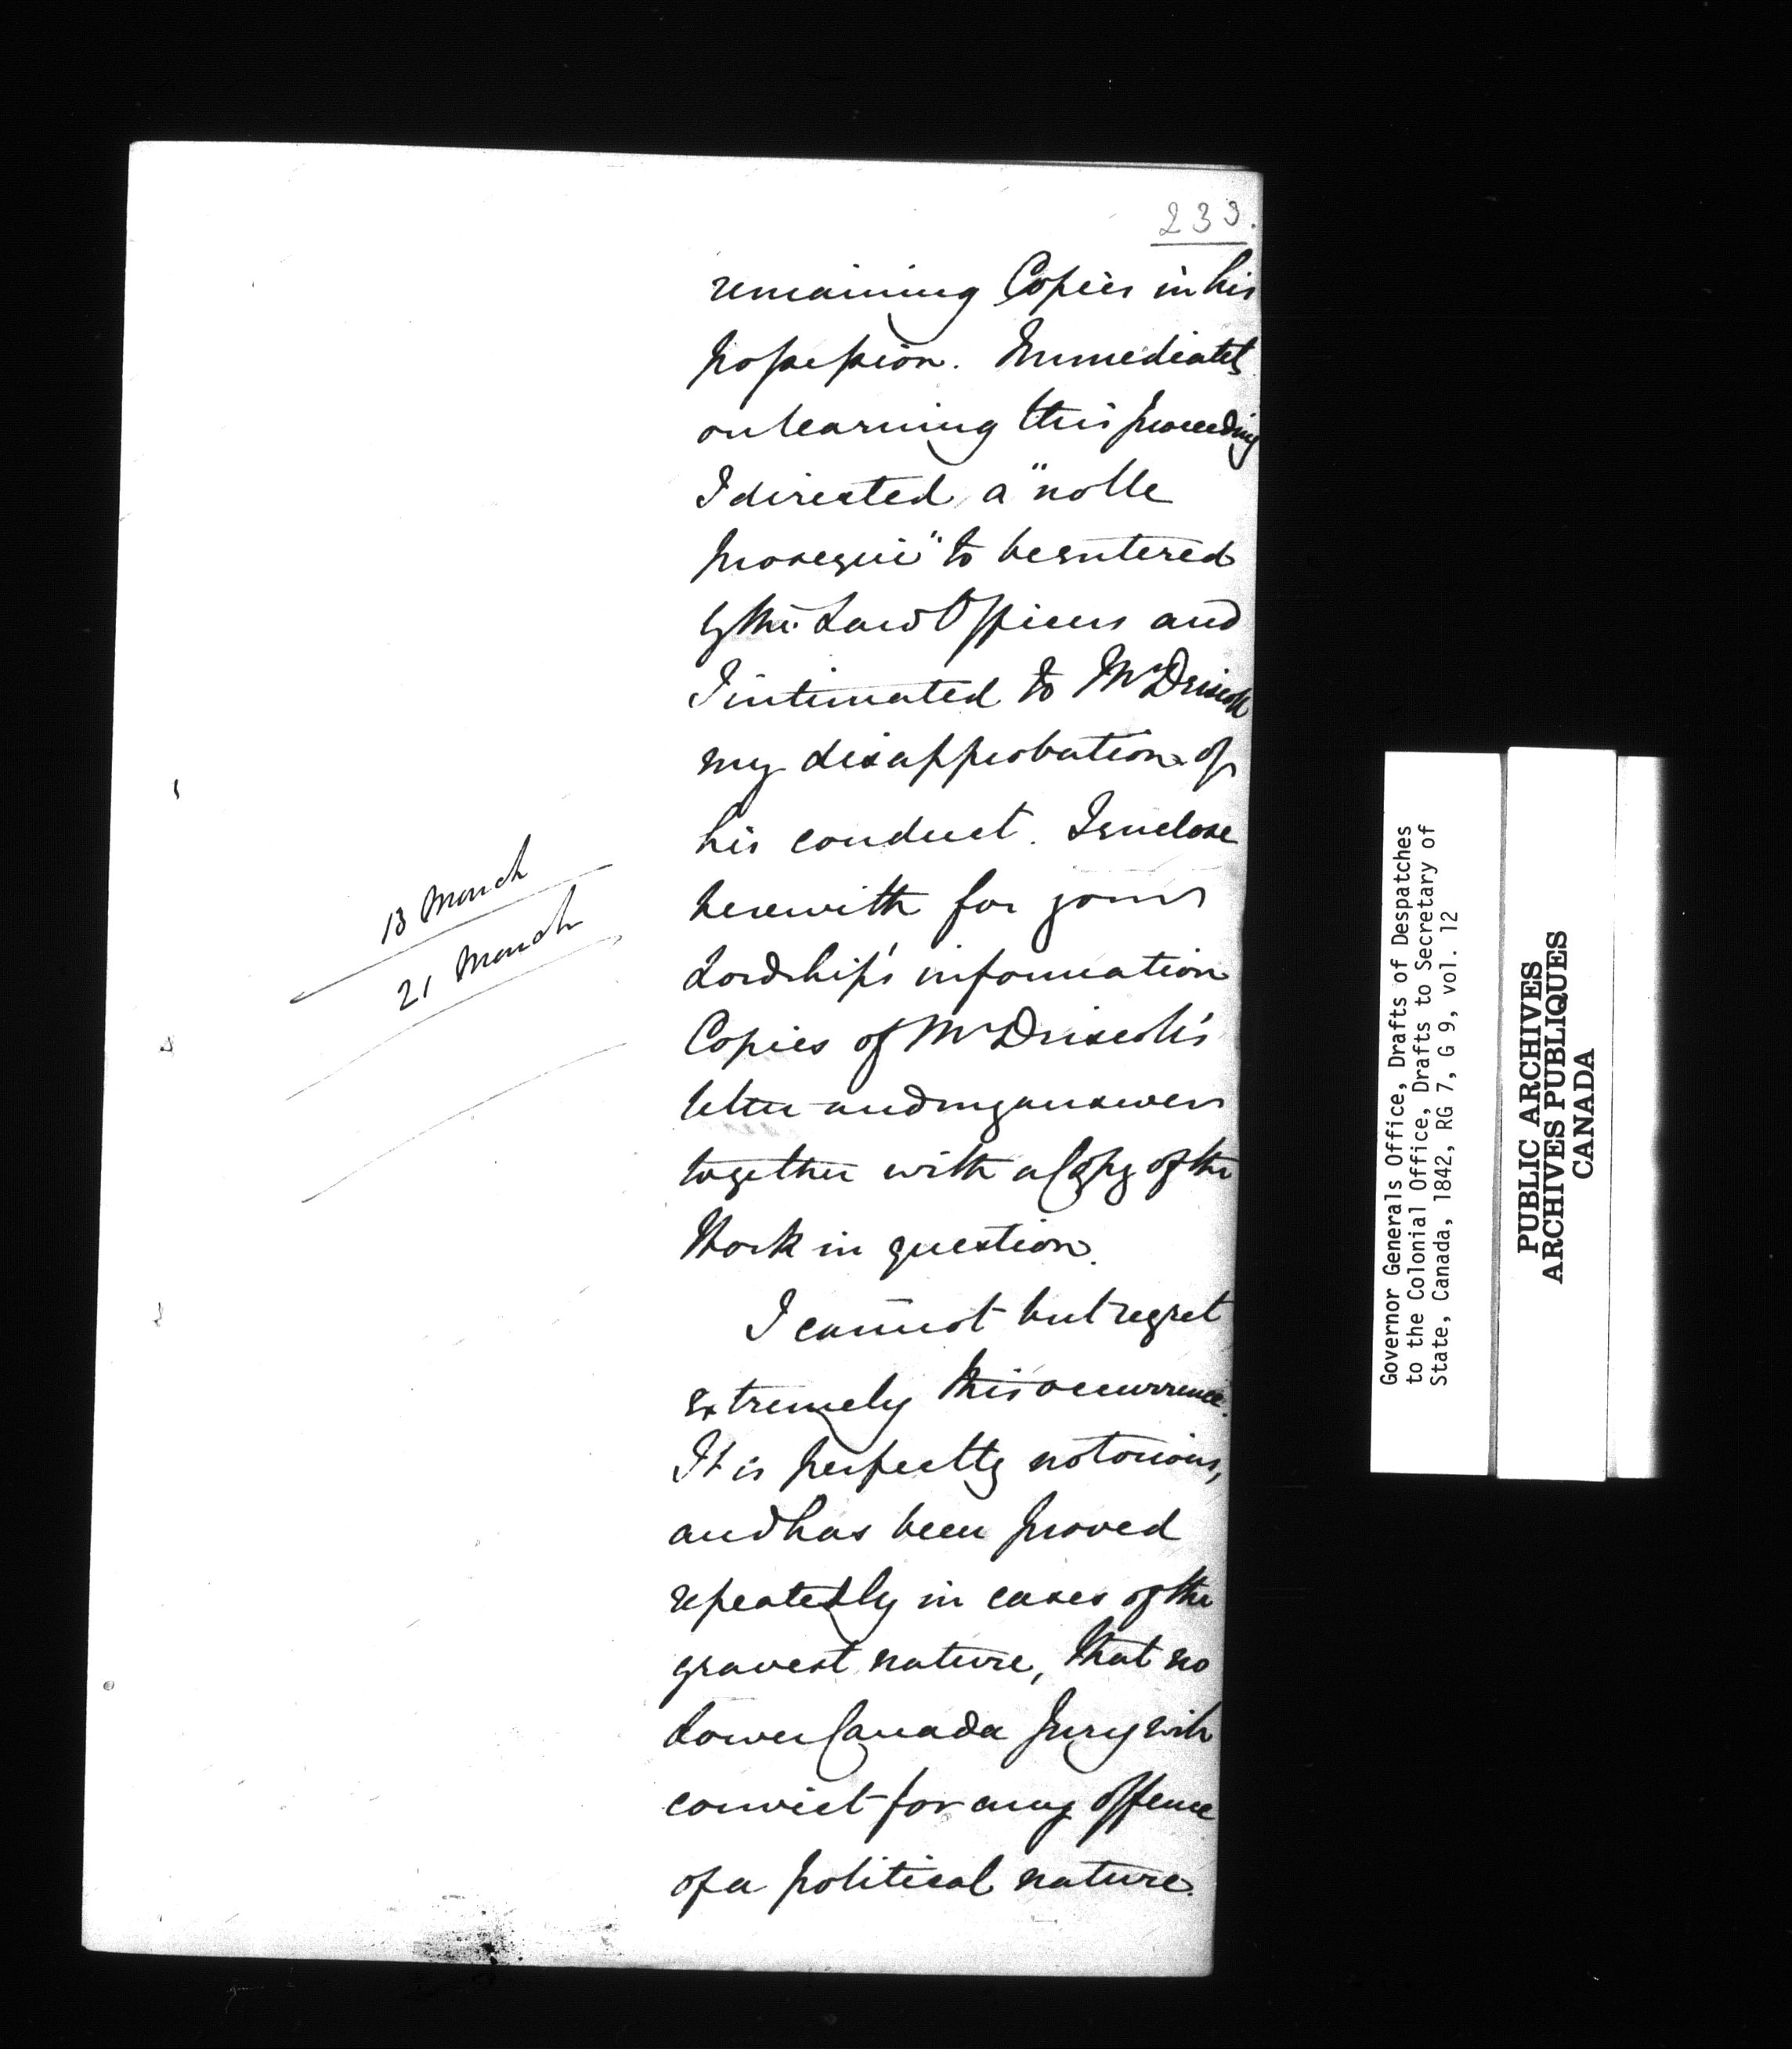 233.
remaining Copies in his
possession. Immediately
on learning this proceeding
I directed a "nolle
prosequi" to be entered
by the Law Officers and
I intimated to Mr Driscoll
my disapprobation of
his conduct. I enclose
herewith for your
Lordship's information
13 March
21 March
Copies of Mr Driscoll's
letter and my answer
together with a Copy of the
Work in question.
I cannot but regret
extremely this occurrence.
It is perfectly notorious,
and has been proved
repeatedly in cases of the
gravest nature, that no
Lower Canada Jury will
convict for any offence
of a political nature.
Governor Generals Office, Drafts of Despatches
to the Colonial Office, Drafts to Secretary of
State, Canada, 1842, RG 7, G 9, vol. 12
PUBLIC ARCHIVES
ARCHIVES PUBLIQUES
CANADA